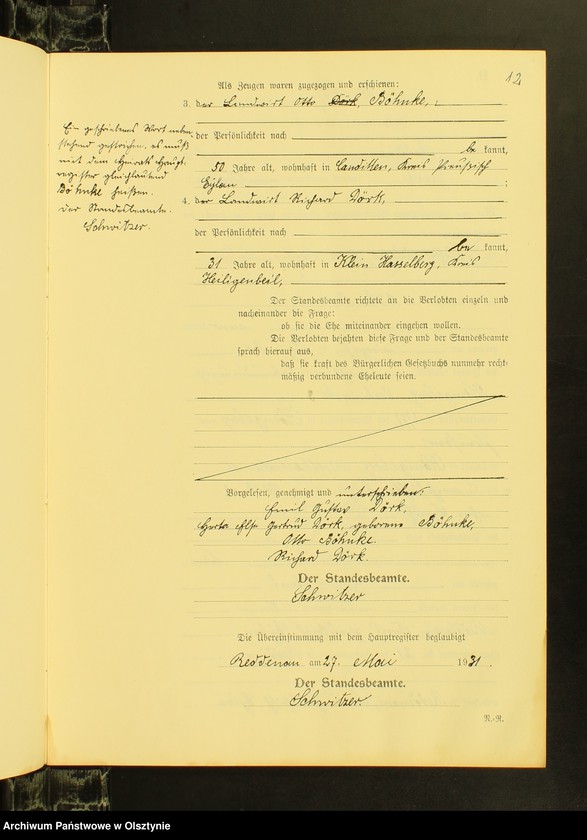 12
Als Zeugen waren zugezogen und erschienen:
3. der Landwirt Otto Dörk Böhnke,
der Persönlichkeit nach
be kannt,
50 Jahre alt, wohnhaft in Landitten, Kreis Preußisch
Eylau ;
4. der Landwirt Richard Dörk,
der Persönlichkeit nach
be kannt,
31 Jahre alt, wohnhaft in Klein Hasselberg, Kreis
Heiligenbeil,
Ein geschriebenes Wort neben-
stehend gestrichen. es muß
mit dem Heirats Haupt-
register gleichlautend
Böhnke heißen.
Der Standesbeamte.
Schwitzer.
Der Standesbeamte richtete an die Verlobten einzeln und
nacheinander die Frage:
ob sie die Ehe miteinander eingehen wollen.
Die Verlobten bejahten diese Frage und der Standesbeamte
sprach hierauf aus,
daß sie kraft des Bürgerlichen Gesetzbuchs nunmehr recht-
mäßig verbundene Eheleute seien.
Vorgelesen, genehmigt und unterschrieben:
Emil Gustav Dörk,
Herta Else Gertrud Dörk, geborene Böhnke,
Otto Böhnke.
Richard Dörk.
Der Standesbeamte.
Schwitzer
Die Übereinstimmung mit dem Hauptregister beglaubigt
Reddenau am 27. Mai 1931.
Der Standesbeamte.
Schwitzer.
N.-R.
Archiwum Państwowe w Olsztynie